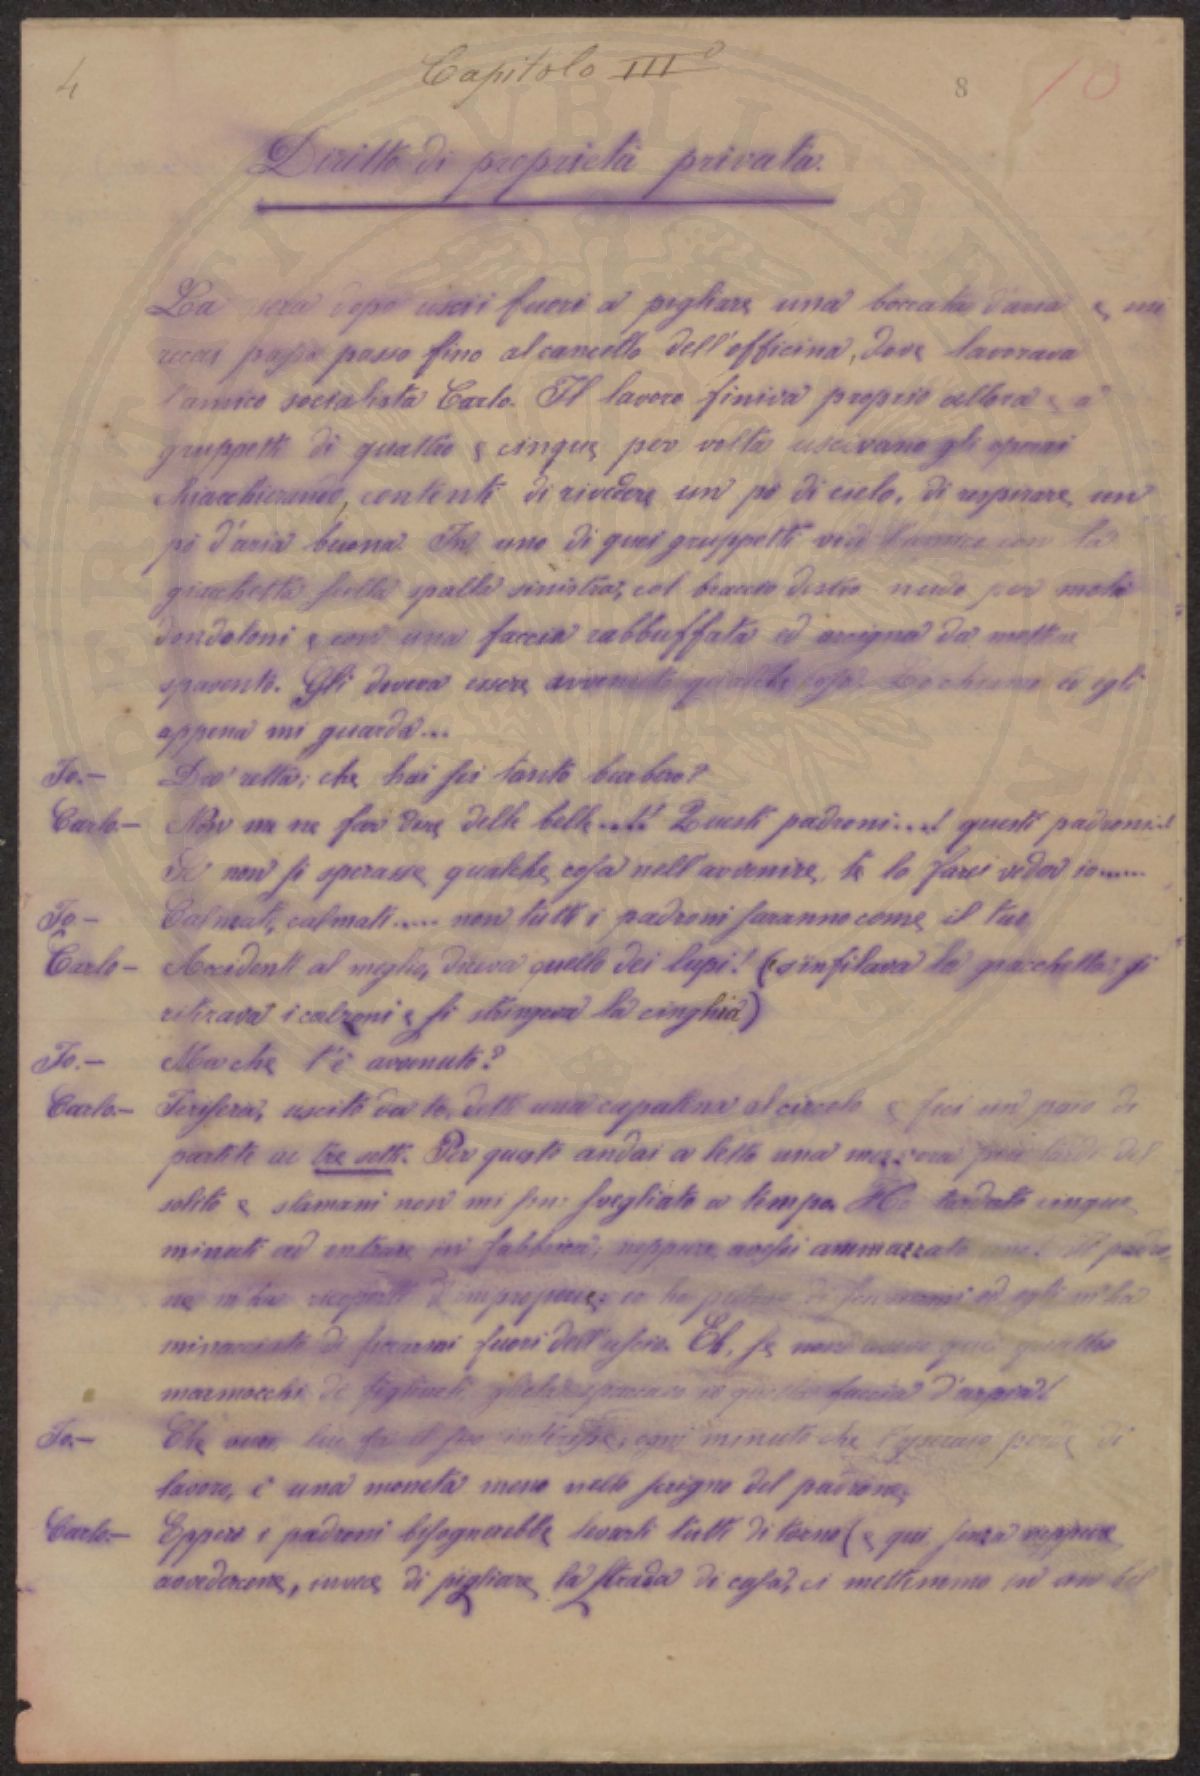 4
Capitolo III°
8
10
Diritto di proprietà privata.
La sera dopo uscii fuori a pigliare una boccata d'aria e mi
recai passo passo fino al cancello dell'officina, dove lavorava
l'amico socialista Carlo. Il lavoro finiva proprio allora e a
gruppetti di quattro e cinque per volta uscivano gli operai
chiacchierando, contenti di rivedere un pò di cielo, di respirare un
pò d'aria buona. In uno di quei gruppetti vidi l'amico con la
giacchetta sulla spalla sinistra, col braccio destro nudo per metà
dondoloni e con una faccia rabbuffata ed arcigna da mettere
spavento. Gli doveva essere avvenuto qualche cosa. Lo chiamo ed egli
appena mi guarda...
Io.— Dà retta; che hai sei tanto burbero?
Carlo— Non me ne far dire delle belle....! Questi padroni....! questi padroni...!
Se non si sperasse qualche cosa nell'avvenire, te lo farei veder io......
Io— Calmati, calmati..... non tutti i padroni saranno come il tuo
Carlo— Accidenti al meglio, diceva quello dei lupi! (e s'infilava la giacchetta, si
ritirava i calzoni e si stringeva la cinghia)
Io.— Ma che t'è avvenuto?
Carlo.— Iersera, uscito da te, detti una capatina al circolo e feci un paio di
partite a tre setti. Per questo andai a letto una mezz'ora più tardi del
solito e stamani non mi son svegliato a tempo. Ho tardato cinque
minuti ad entrare in fabbrica, neppure avessi ammazzato uno! Il padro-
ne m'ha ricoperto d'improperi; io ho di scusarmi ed egli m'ha
minacciato di ficcarmi fuori dell'uscio. Eh, se non avevo quei quattro
marmocchi di figliuoli, gliela io quella faccia d'arpia!
Io.— Che vuoi lui fa il suo interesse; ogni minuto che l'operaio perde di
lavoro, è una moneta meno nello scrigno del padrone.
Carlo.— Eppure i padroni bisognerebbe levarli tutti di torno (e qui senza neppure
avvedercene, invece di pigliare la strada di casa, ci mettemmo in un bel